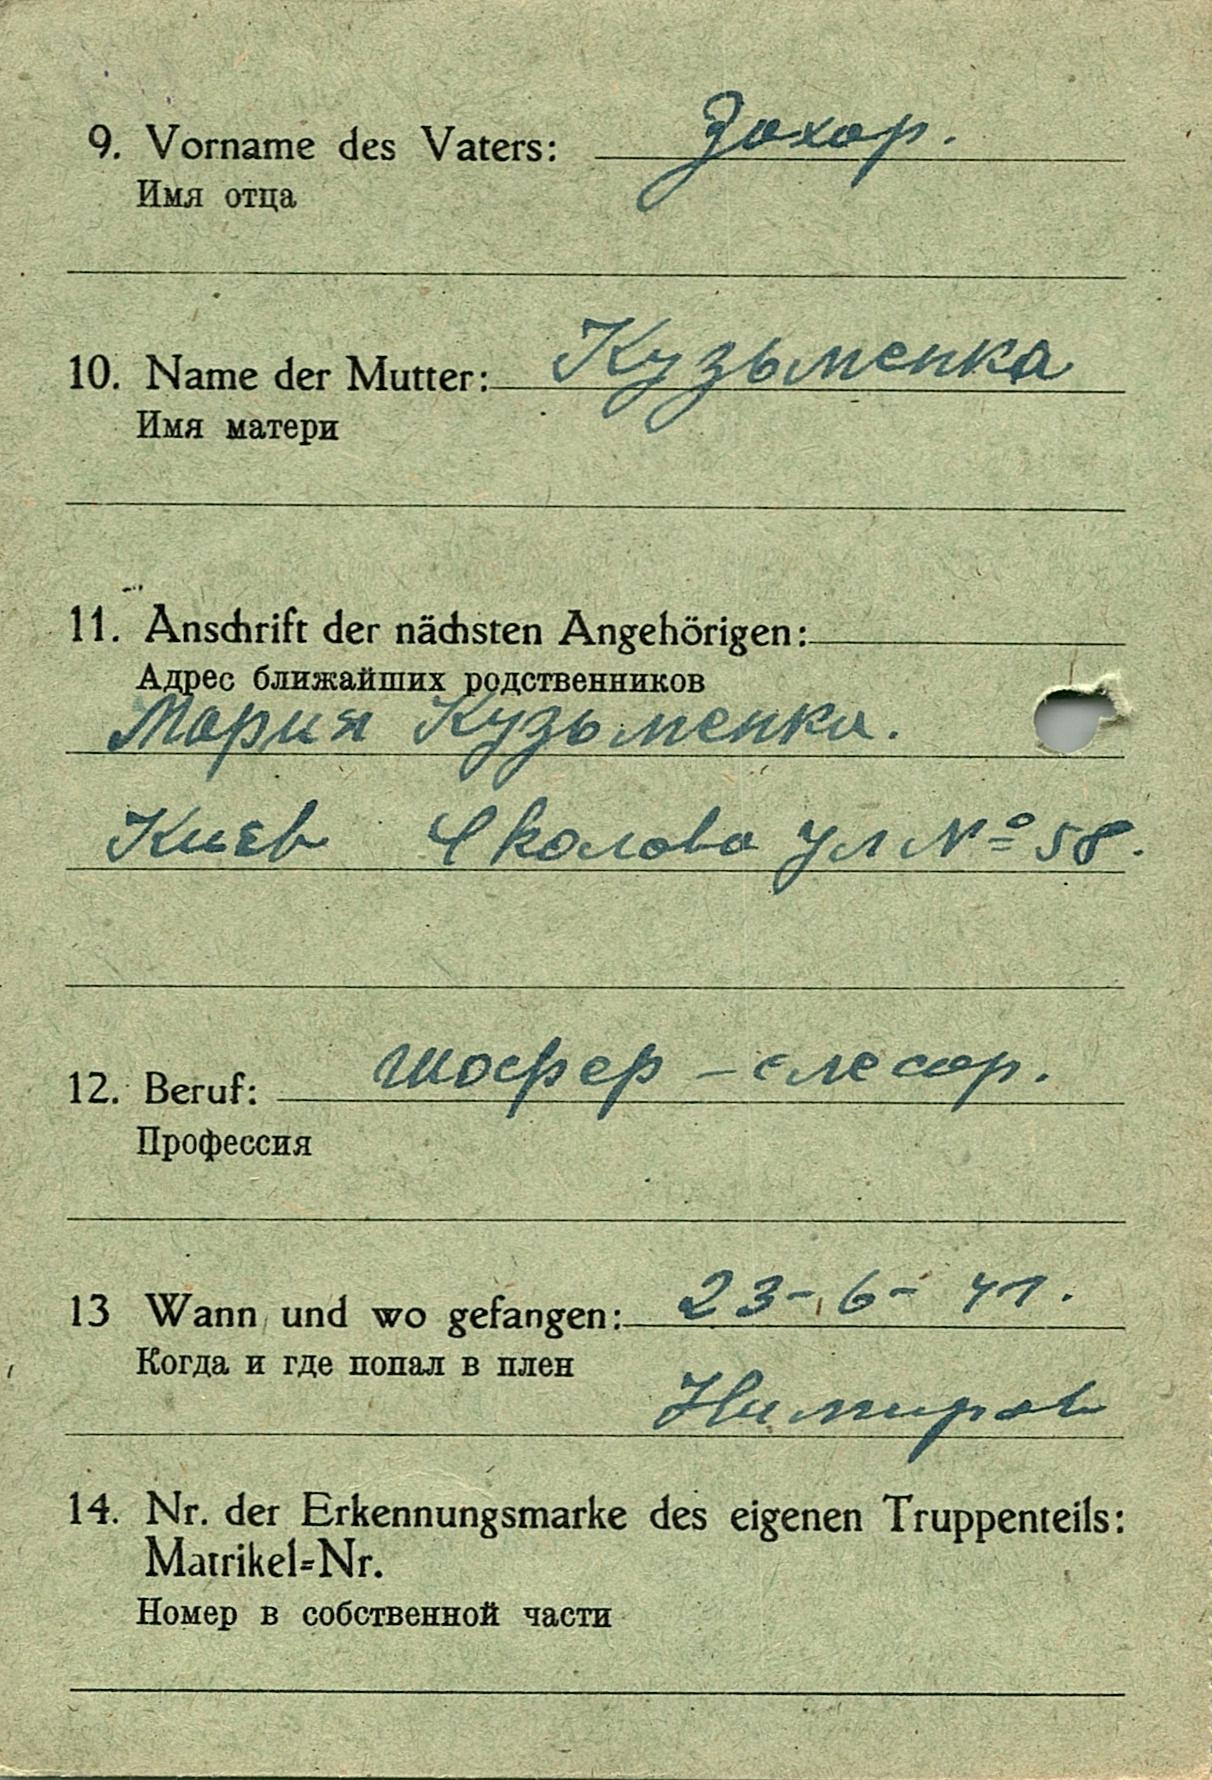 9. Vorname des Vaters: Зохор.
Имя отца
10. Name der Mutter: Кузьменка
Имя матери
11. Anschrift der nächsten Angehörigen:
Адрес ближайших родственников
Мория Кузьменка.
Киев Школова ул № 58.
12. Beruf: шофер – слесар.
Профессия
13 Wann und wo gefangen: 23-6-41.
Когда и где попал в плен
Нимиров
14. Nr. der Erkennungsmarke des eigenen Truppenteils:
Matrikel=Nr.
Номер в собственной части